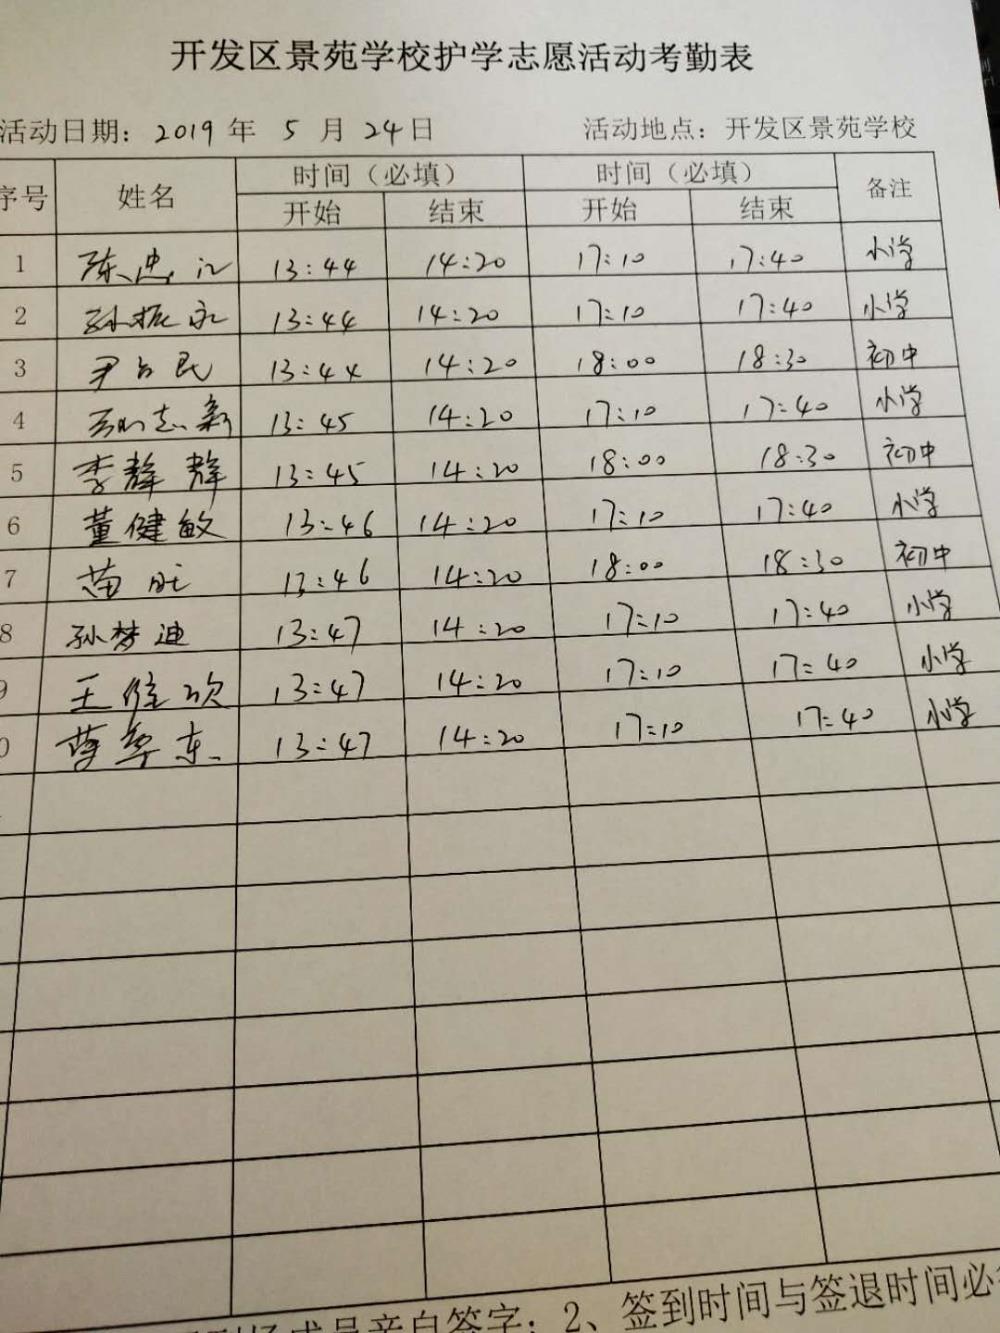 开发区景苑学校护学志愿活动考勤表
活动日期：2019 年 5 月 24日 活动地点：开发区景苑学校
序号 姓名 时间（必填） 时间（必填） 备注
开始 结束 开始 结束
1 陈忠江 13:44 14:20 17:10 17:40 小学
2 孙振永 13:44 14:20 17:10 17:40 小学
3 尹占民 13:44 14:20 18:00 18:30 初中
4 志新 13:45 14:20 17:10 17:40 小学
5 李静静 13:45 14:20 18:00 18:30 初中
6 董健敏 13:46 14:20 17:10 17:40 小学
7 苗旺 13:46 14:20 18:00 18:30 初中
8 孙梦迪 13:47 14:20 17:10 17:40 小学
9 王维欣 13:47 14:20 17:10 17:40 小学
0 华东 13:47 14:20 17:10 17:40 小学
成员亲自签字；2、签到时间与签退时间必